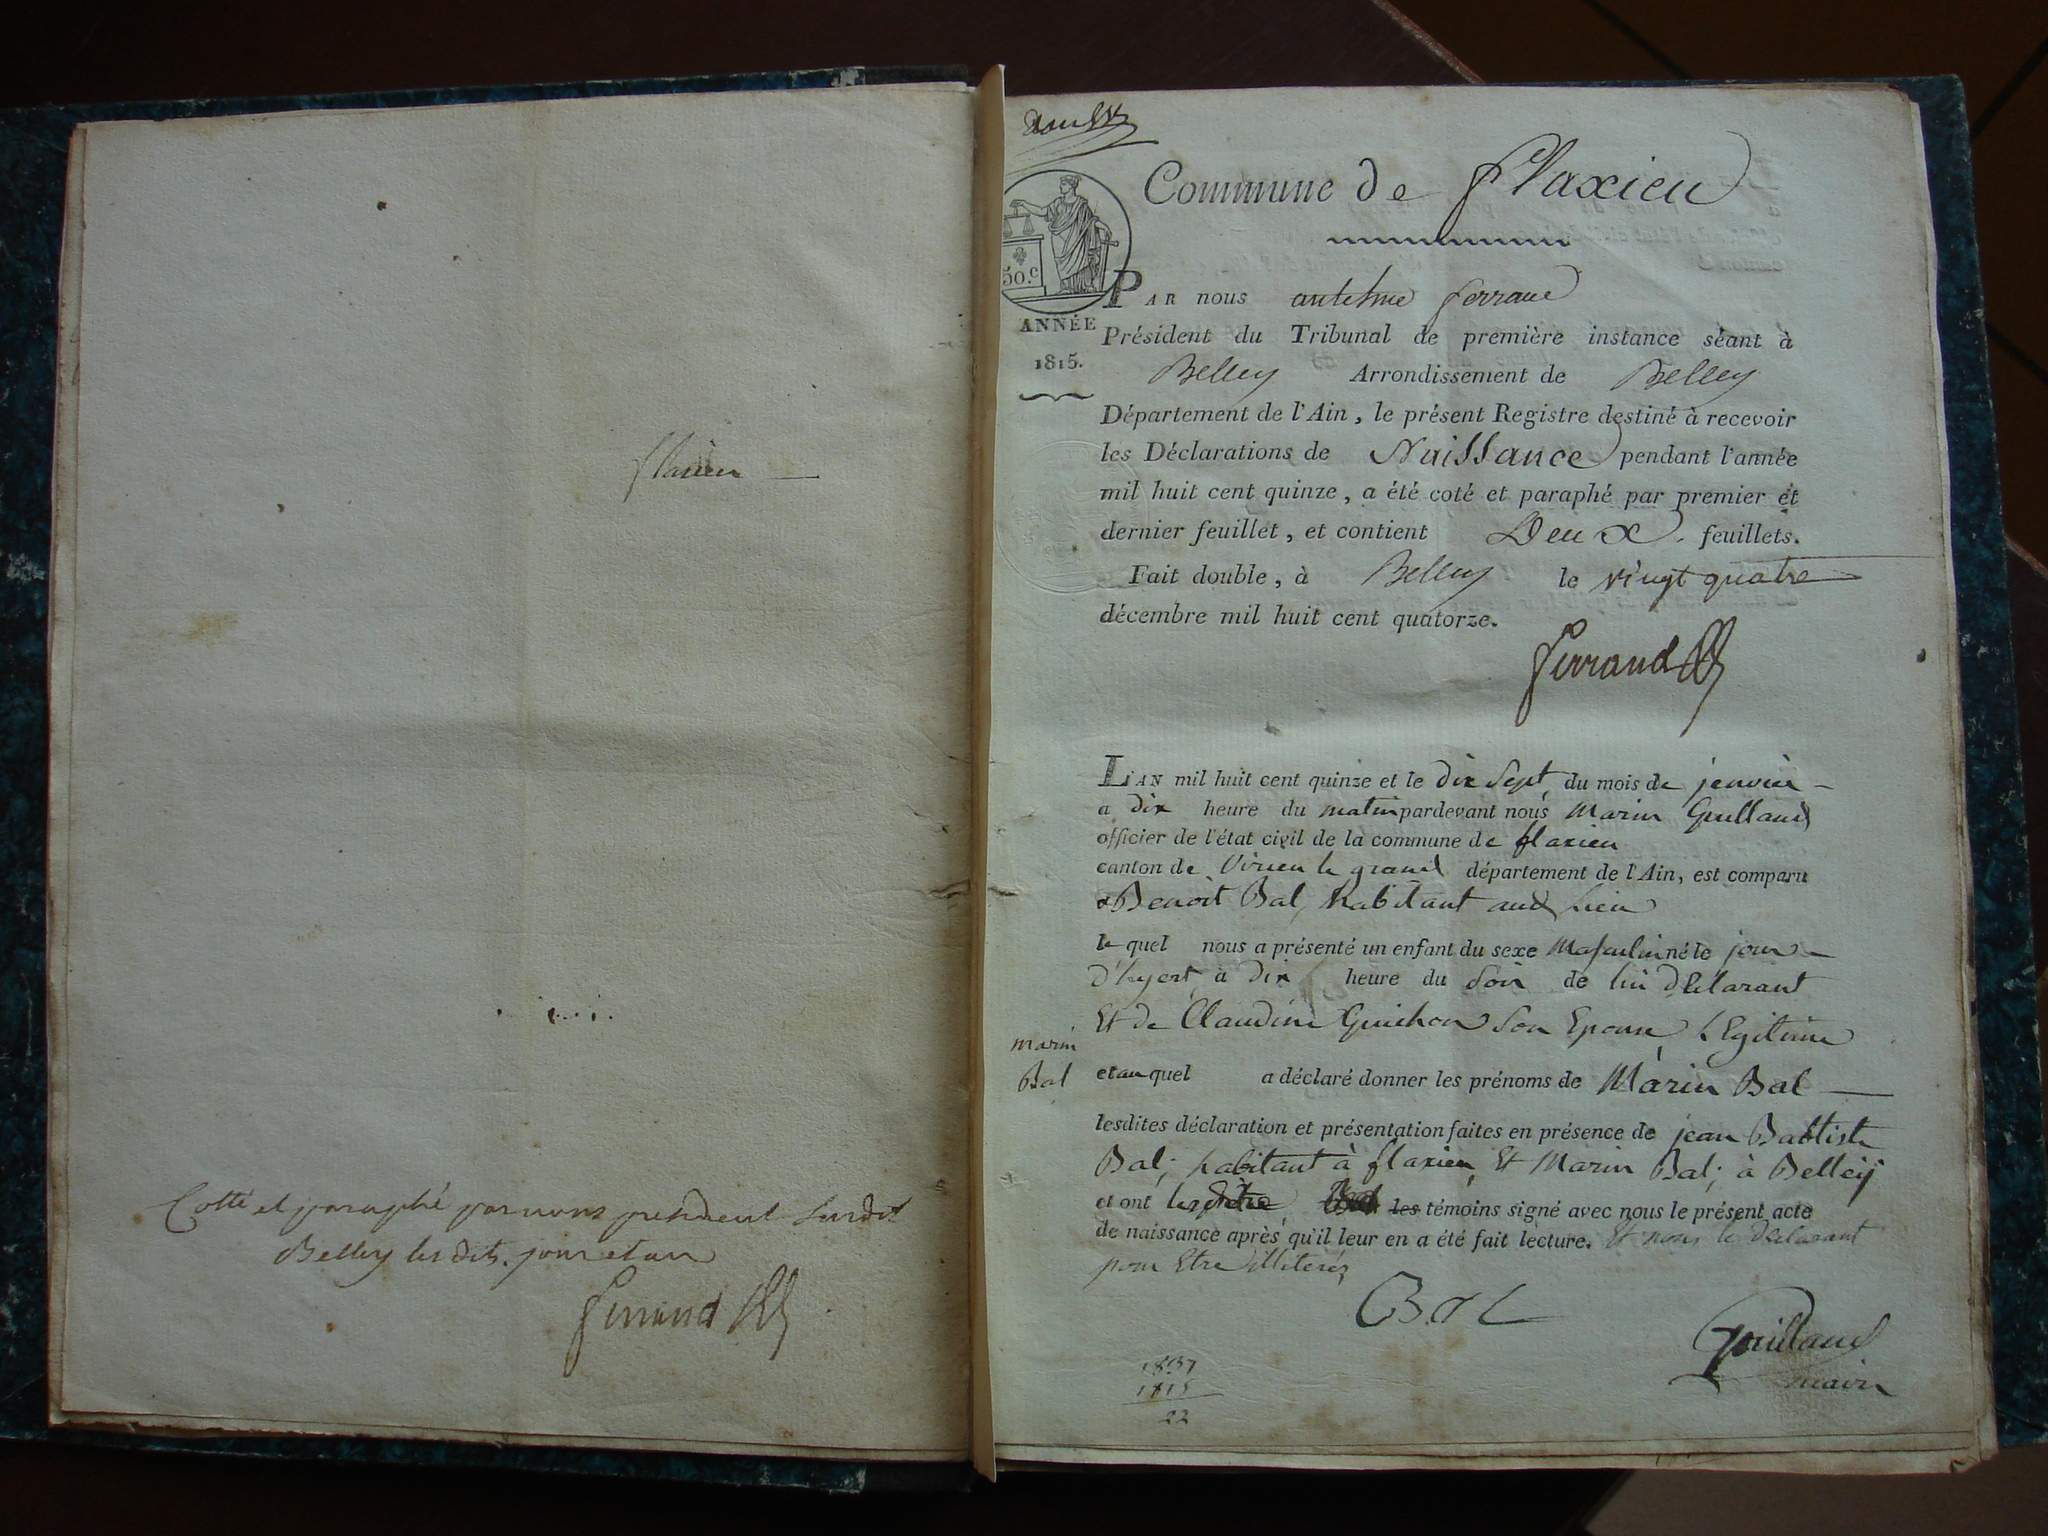 flaxieu
Cotté et paraphé par nous president susdit
Belley lesdits jour et an
Ferrand
Commune de Flaxieu
50.c
ANNÉE
1815.
PAR nous antelme ferrand
Président du Tribunal de première instance séant à
Belley Arrondissement de Belley
Département de l'Ain, le présent Registre destiné à recevoir
les Déclarations de Naissance pendant l'année
mil huit cent quinze, a été coté et paraphé par premier et
dernier feuillet, et contient Deux feuillets.
Fait double, à Belley le vingt quatre
décembre mil huit cent quatorze.
Ferrand
L'AN mil huit cent quinze et le dix Sept du mois de jenvier
a dix heure du matin pardevant nous Marin Guillaud
officier de l'état civil de la commune de flaxieu
canton de Virieu le grand département de l'Ain, est comparu
Benoit Bal, habitant aud Lieu
le quel nous a présenté un enfant du sexe Masculin né le jour
d'hyert à dix heure du Soir de lui Déclarant
Et de Claudine Guichon Son Epouse Legitime
marin
Bal
et au quel a déclaré donner les prénoms de Marin Bal
lesdites déclaration et présentation faites en présence de jean Battiste
Bal; habitant à flaxieu, Et Marin Bal; à Belley
et ont les témoins signé avec nous le présent acte
de naissance après qu'il leur en a été fait lecture. Et nous le Déclarant
pour Etre illiterés
Bal
Guillaud
maire
1837
1815
22